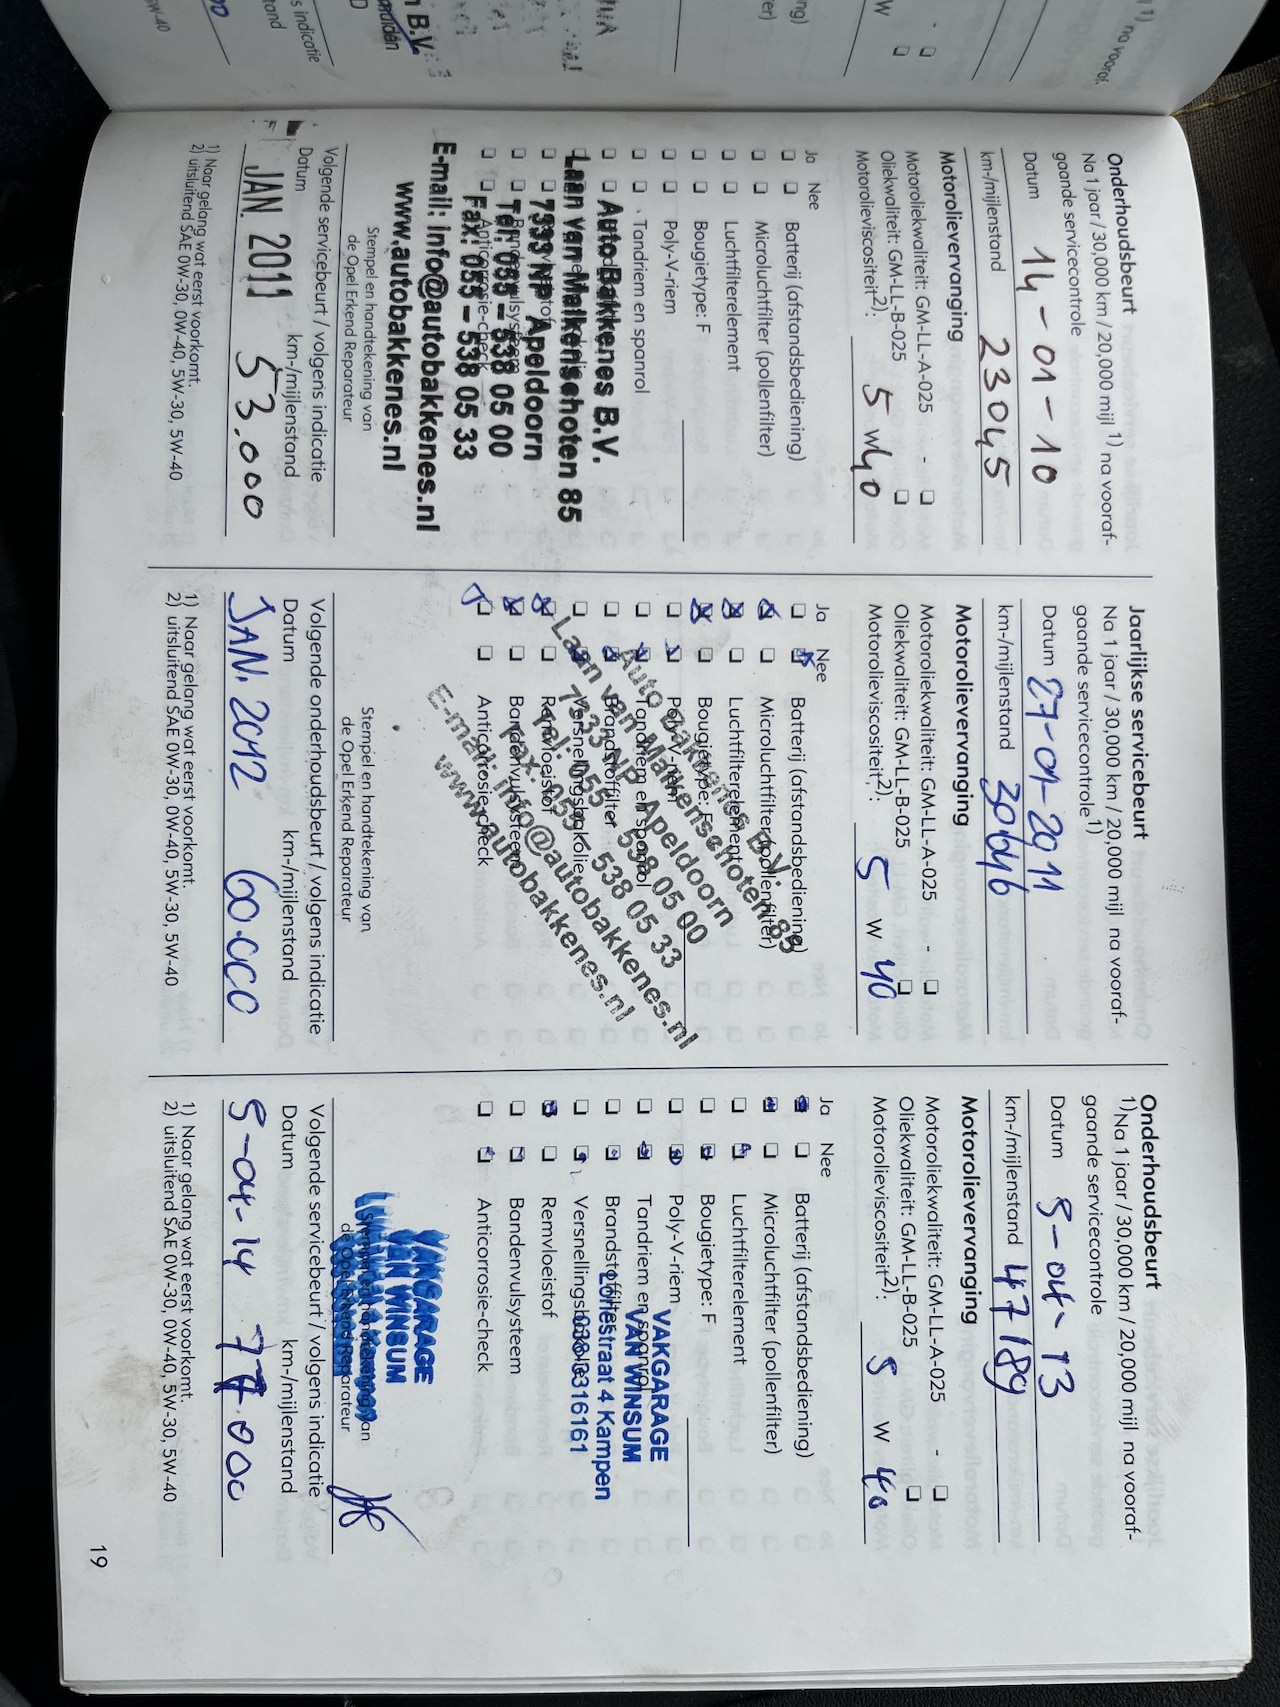 Onderhoudsbeurt
Na 1 jaar / 30,000 km / 20,000 mijl 1) na vooraf-
gaande servicecontrole
Datum 14-01-10
km-/mijlenstand 23045
Motorolievervanging
Motoroliekwaliteit: GM-LL-A-025 -
Oliekwaliteit: GM-LL-B-025
Motorolieviscositeit2): 5 W40
Ja Nee
Batterij (afstandsbediening)
Microluchtfilter (pollenfilter)
Luchtfilterelement
Bougietype: F
Poly-V-riem
Tandriem en spanrol
Auto Bakkenes B.V.
Laan van Malkenschoten 85
7333 NP Apeldoorn
Tel: 055 - 538 05 00
Fax: 055 - 538 05 33
Anticorrosie-check
E-mail: info@autobakkenes.nl
www.autobakkenes.nl
Stempel en handtekening van
de Opel Erkend Reparateur
Volgende servicebeurt / volgens indicatie
Datum km-/mijlenstand
JAN. 2011 53.000
1) Naar gelang wat eerst voorkomt.
2) uitsluitend SAE 0W-30, 0W-40, 5W-30, 5W-40
Jaarlijkse servicebeurt
Na 1 jaar / 30,000 km / 20,000 mijl na vooraf-
gaande servicecontrole1)
Datum 27-01-2011
km-/mijlenstand 30646
Motorolievervanging
Motoroliekwaliteit: GM-LL-A-025 -
Oliekwaliteit: GM-LL-B-025
Motorolieviscositeit2): 5 W 40
Ja Nee
Batterij (afstandsbediening)
Microluchtfilter (pollenfilter)
Luchtfilterelement
Bougietype: F
Poly-V-riem
Tandriem en spanrol
Brandstoffilter
Versnellingsbakolie
Remvloeistof
Bandenvulsysteem
Anticorrosie-check
Auto Bakkenes B.V.
Laan van Malkenschoten 85
7333 NP Apeldoorn
Tel: 055 - 538 05 00
Fax: 055 - 538 05 33
E-mail: info@autobakkenes.nl
www.autobakkenes.nl
Stempel en handtekening van
de Opel Erkend Reparateur
Volgende onderhoudsbeurt / volgens indicatie
Datum km-/mijlenstand
JAN. 2012 60.000
1) Naar gelang wat eerst voorkomt.
2) uitsluitend SAE 0W-30, 0W-40, 5W-30, 5W-40
Onderhoudsbeurt
1)Na 1 jaar / 30,000 km / 20,000 mijl na vooraf-
gaande servicecontrole
Datum 5-04-13
km-/mijlenstand 47189
Motorolievervanging
Motoroliekwaliteit: GM-LL-A-025 -
Oliekwaliteit: GM-LL-B-025
Motorolieviscositeit2): 5 W 40
Ja Nee
Batterij (afstandsbediening)
Microluchtfilter (pollenfilter)
Luchtfilterelement
Bougietype: F
Poly-V-riem
Tandriem en spanrol
Brandstoffilter
Versnellingsbakolie
Remvloeistof
Bandenvulsysteem
Anticorrosie-check
VAKGARAGE
VAN WINSUM
Loriestraat 4 Kampen
038-3316161
VAKGARAGE
VAN WINSUM
Stempel en handtekening van
de Opel Erkend Reparateur
Volgende servicebeurt / volgens indicatie
Datum km-/mijlenstand
5-04-14 77.000
1) Naar gelang wat eerst voorkomt.
2) uitsluitend SAE 0W-30, 0W-40, 5W-30, 5W-40
19